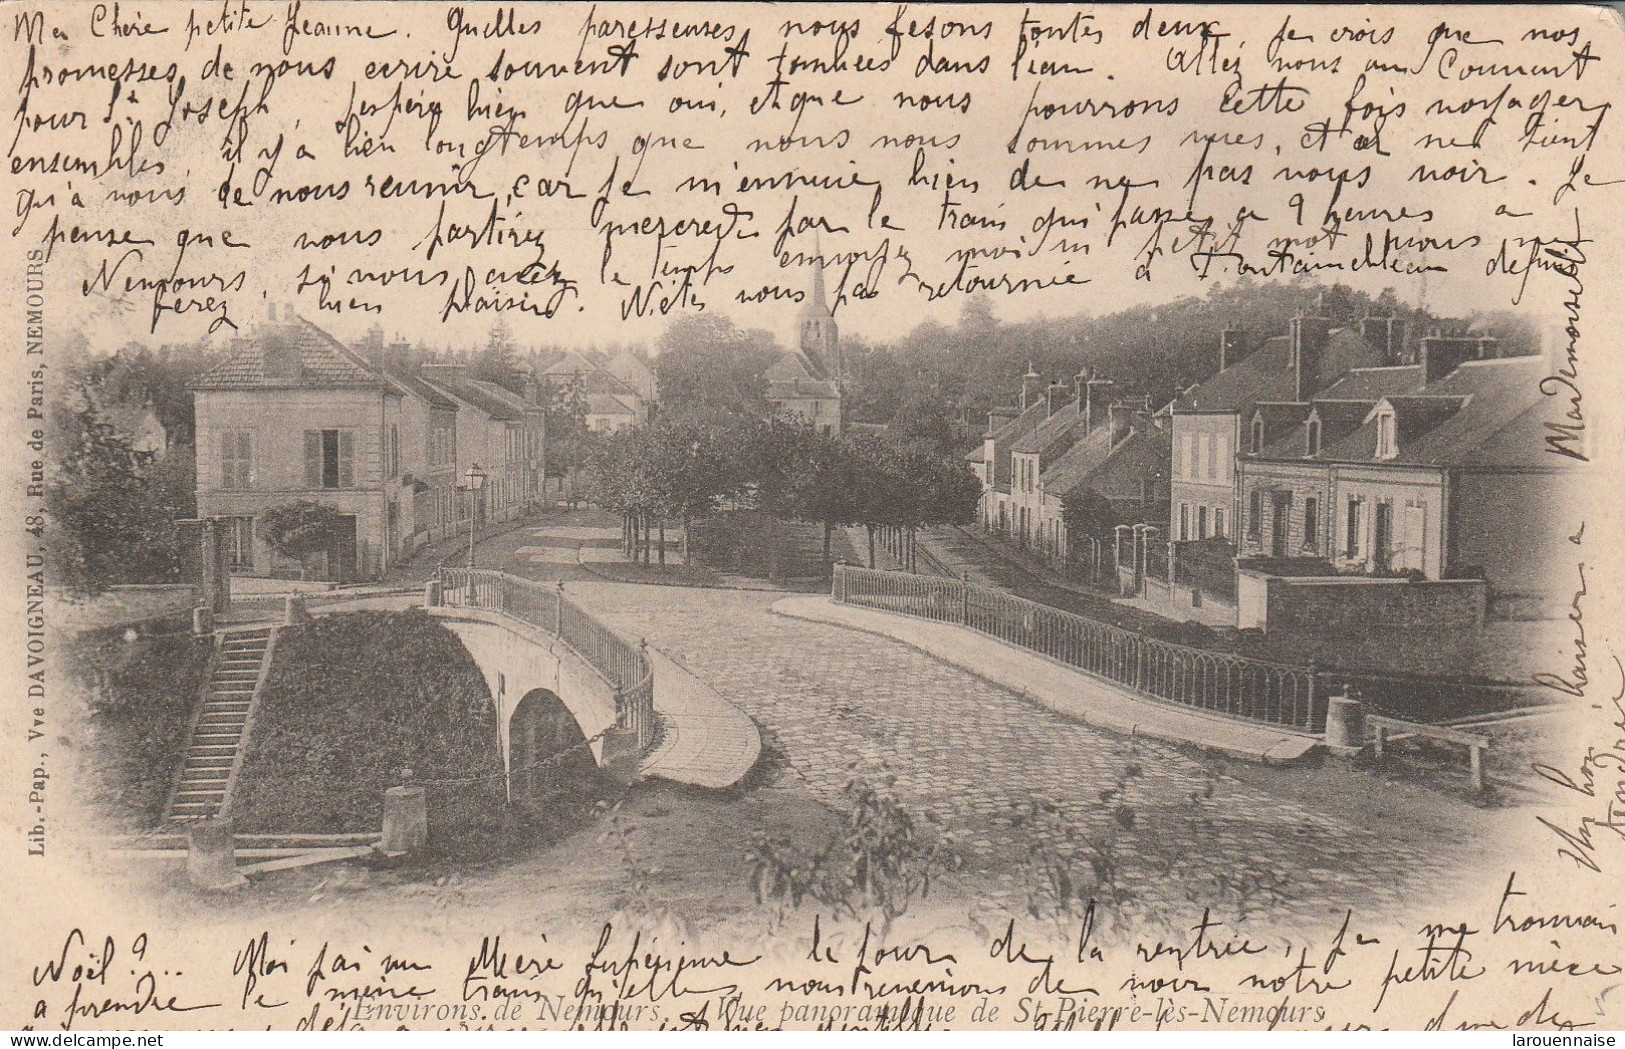 Ma Chère petite Jeanne. Quelles paresseuses nous fesons toutes deux, je crois que nos
promesses de nous ecrire souvent sont tombées dans l'eau. Allez vous au Couvent
pour St Joseph, j'espère bien que oui, et que nous pourrons cette fois voyager
ensembles, il y a bien longtemps que nous nous sommes vues, et ne tient
qu'à nous de nous reunir, car je m'ennuie bien de ne pas vous voir. Je
pense que vous partirez mercredi par le train qui passe a 9 heures a
Nemours, si vous avez le temps envoyez moi un petit mot vous me
ferez bien plaisir. N'êtes vous pas retournée à Fontainebleau depuis
Noël ?... Moi j'ai vu Mère Supérieure le jour de la rentrée, je me trouvais
a prendre le même train qu'elle, nous revenions de voir notre petite nièce
Un bon baiser a Mademoiselle
Lib.-Pap., Vve DAVOIGNEAU, 48, Rue de Paris, NEMOURS
Environs de Nemours. - Vue panoramique de St-Pierre-lès-Nemours
delcampe.net
larouennaise